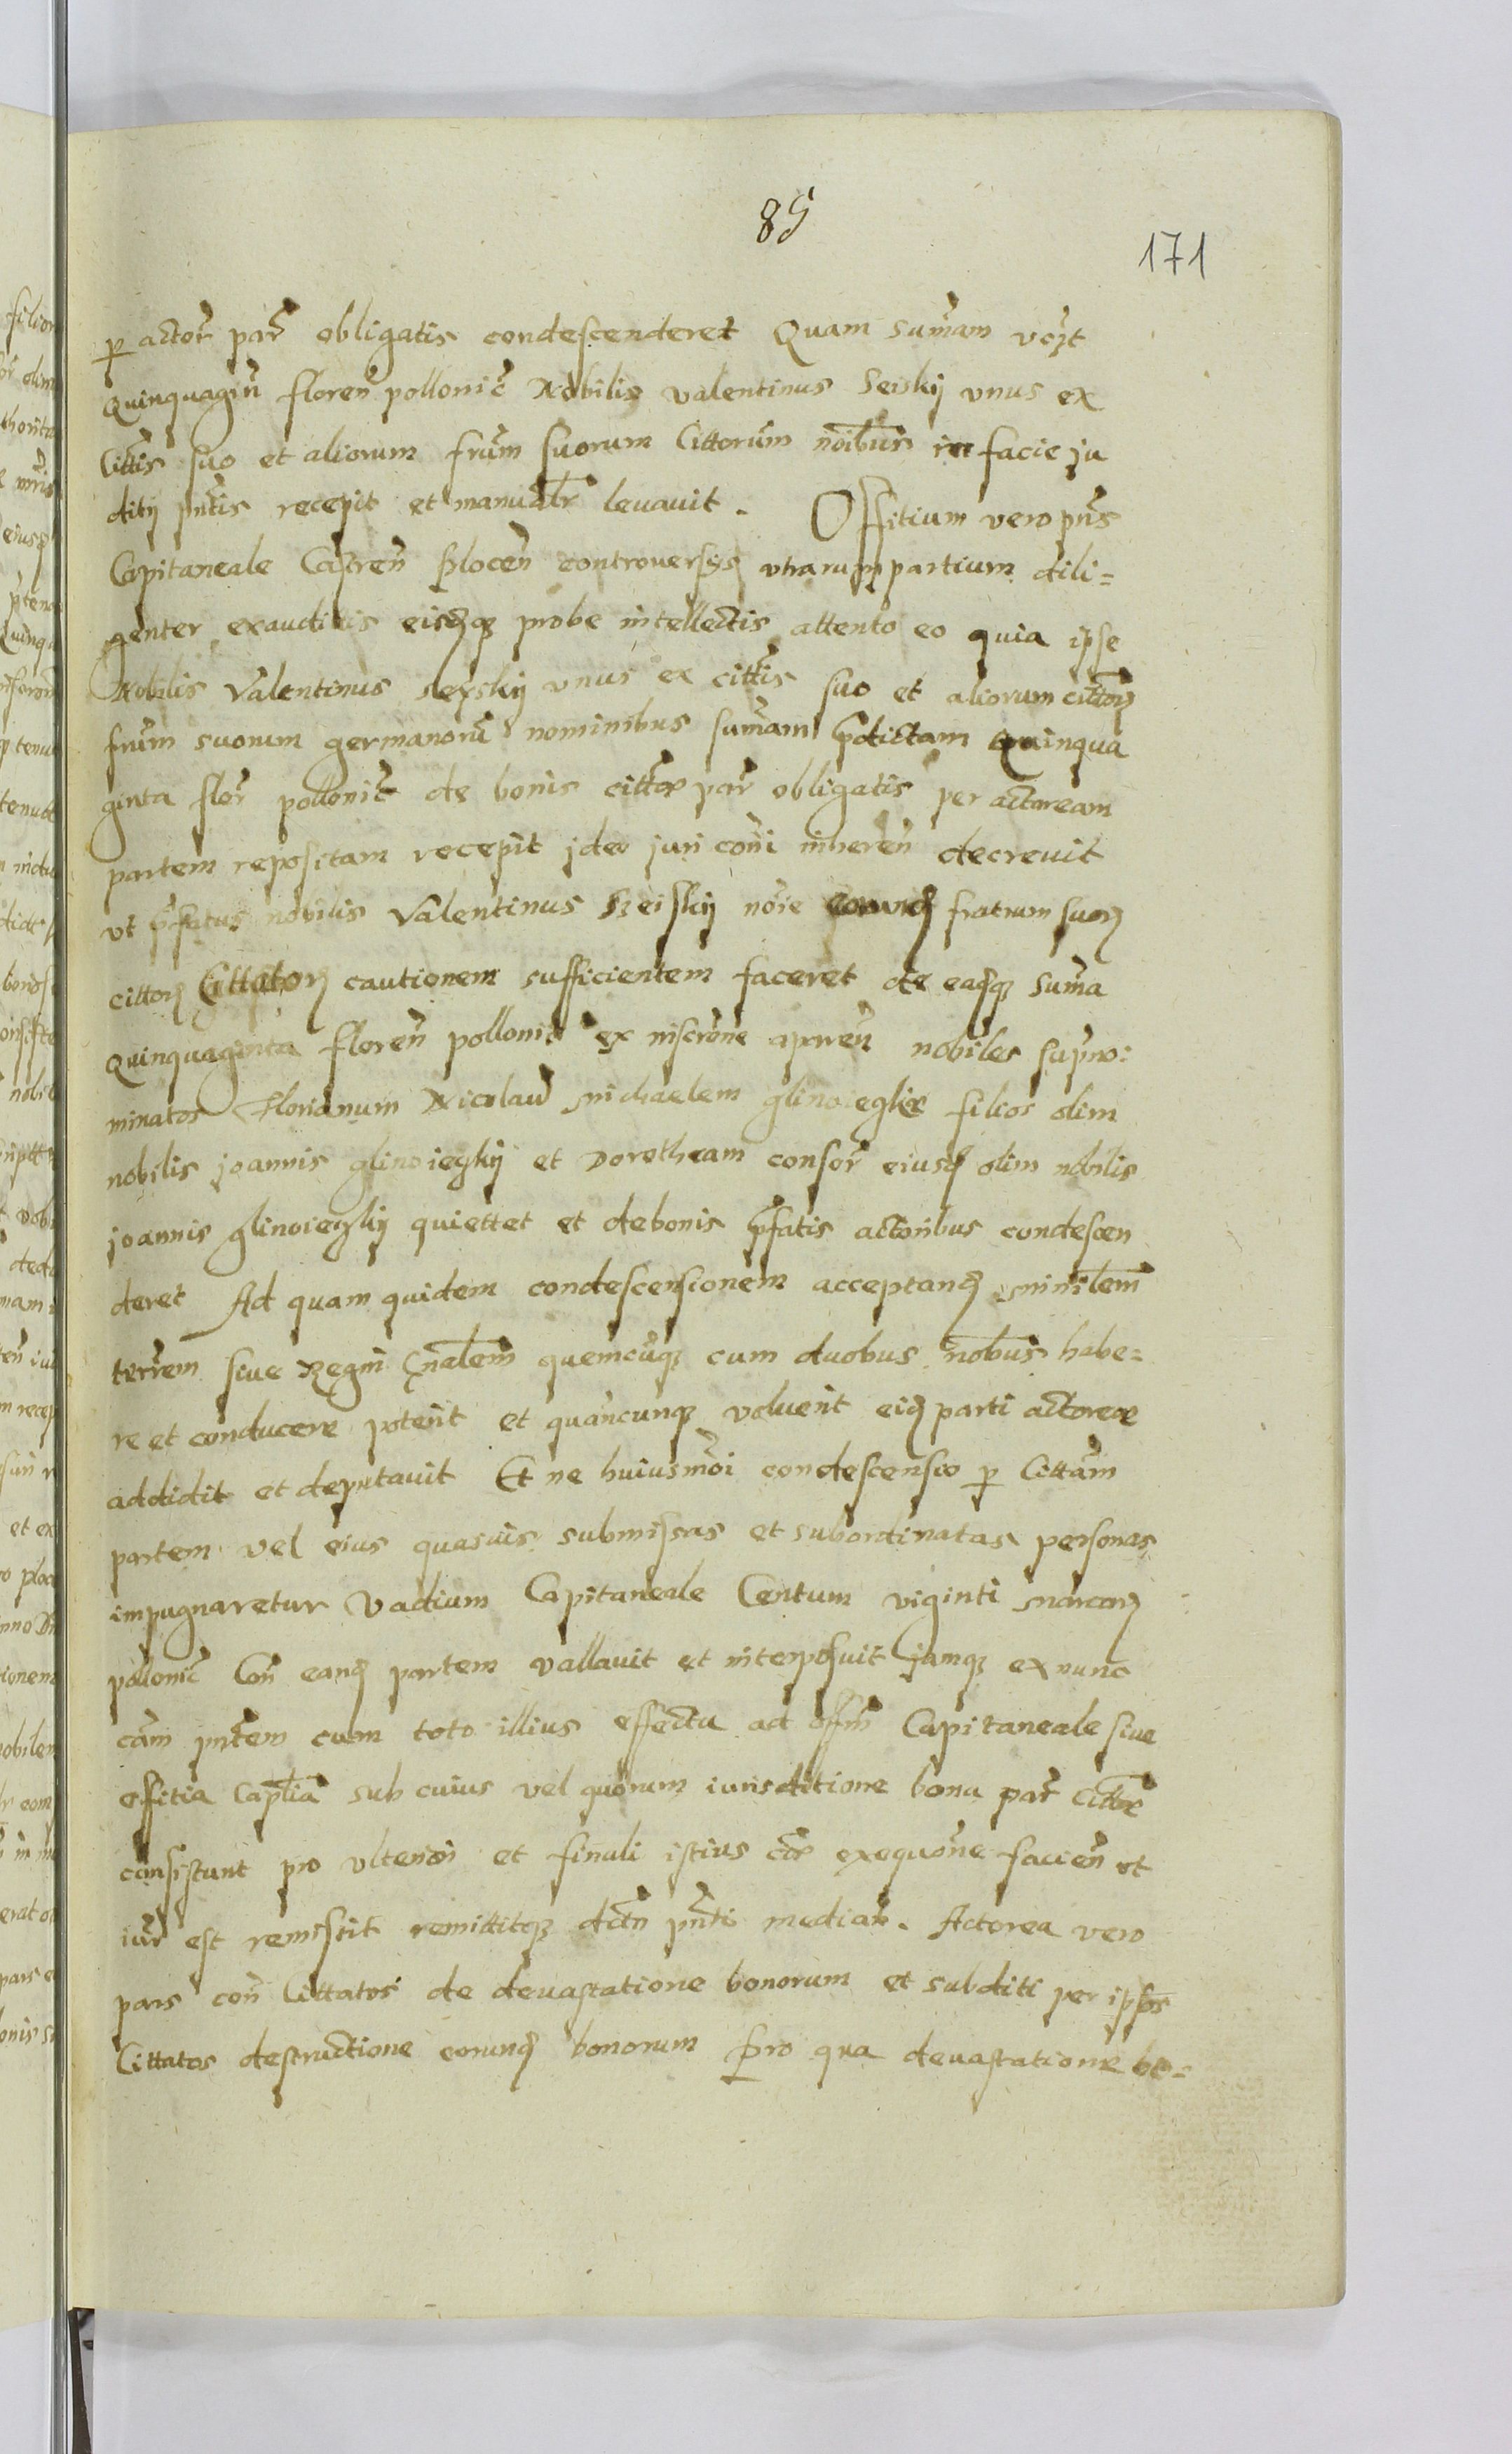 85
171
p actor̃ par̃ obligatis condescenderet Quam sum̃am vczt
Quinquagin̄ floren̄ polloni͠c Nobilis valentinus Seiskij vnus ex
Citt͠is suo et aliorum fr͠um suorum Cittorũm no͠ibus in facie ju
ditij pn͠tis recepit et manual͠r leuauit. Offitium vero pn͠s
Capitaneale Castren̄ Plocen̄ controuersijs vtrarumq partium dili=
genter exauditis eisdq probe intellectis attento eo quia ipse
Nobilis Valentinus seyskij vnus ex citt͠is suo et aliorum cittor
fr͠um suorum germanorũ nominibus sum̃am p̃dictam Quinqua
ginta flor̃ polloni͠c de bonis citt͠æ par̃ obligatis per actoream
partem repositam recepit jdeo juri com̃i inheren̄ decreuit
vt p̃fatus nobilis Valentinus Seiskij no͠ie eorund fratrum suor
cittor Cittator cautionem sufficientem faceret de eadq sum̃a
quinquaginta floren̄ polloni͠c ex inscr͠one apparen̄ nobiles sup̃no:
minatos Florianum Nicolaũ Michaelem glinoieczkie filios olim
nobilis joannis glinoieczkij et Dorotheam consor̃ eiusd olim nobilis
joannis glinoieczkij quiettet et de bonis p̃fatis actoribus condescen
deret Ad quam quidem condescensionem acceptand minis͠lem
terr͠em siue Regni Gn͠alem quemcũq cum duobus nob͠bus habe=
re et conducere poterit et quancunq voluerit eid parti actoreæ
addidit et deputauit Et ne huiusm͠oi condescensio p Cittãm
partem vel eius quasuis submissas et subordinatas personas
impugnaretur Vadium Capitaneale Centum viginti marcar
polloni͠c Con̄ eand partem vallauit et interposuit jamq ex nunc
cãm pn͠tem cum toto illius effectu ad off͠m Capitaneale siue
offitia Cap͠lia sub cuius vel quorum iurisditione bona par̃ Citt͠æ
consistunt pro vlteriori et finali istius c͠æ exequ͠one facien̄ vt
iur̃ est remisit remittitq dict͠o pn͠ti median̄. Actorea vero
pars con̄ Cittatos de deuastatione bonorum et subditi per ipsos
Cittatos destructione eorund bonorum Pro qua deuastatione bo=